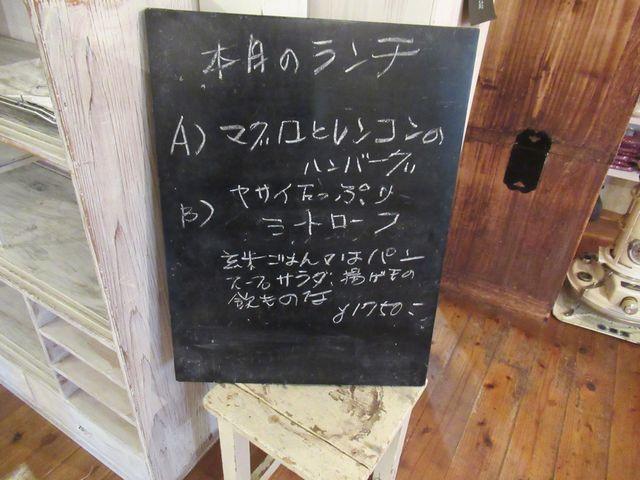 本日のランチ
A) マグロとレンコンの
ハンバーグ
B) ヤサイたっぷり
ミートローフ
玄米ごはん又はパン
スープ サラダ、揚げもの
飲もの
¥1750-